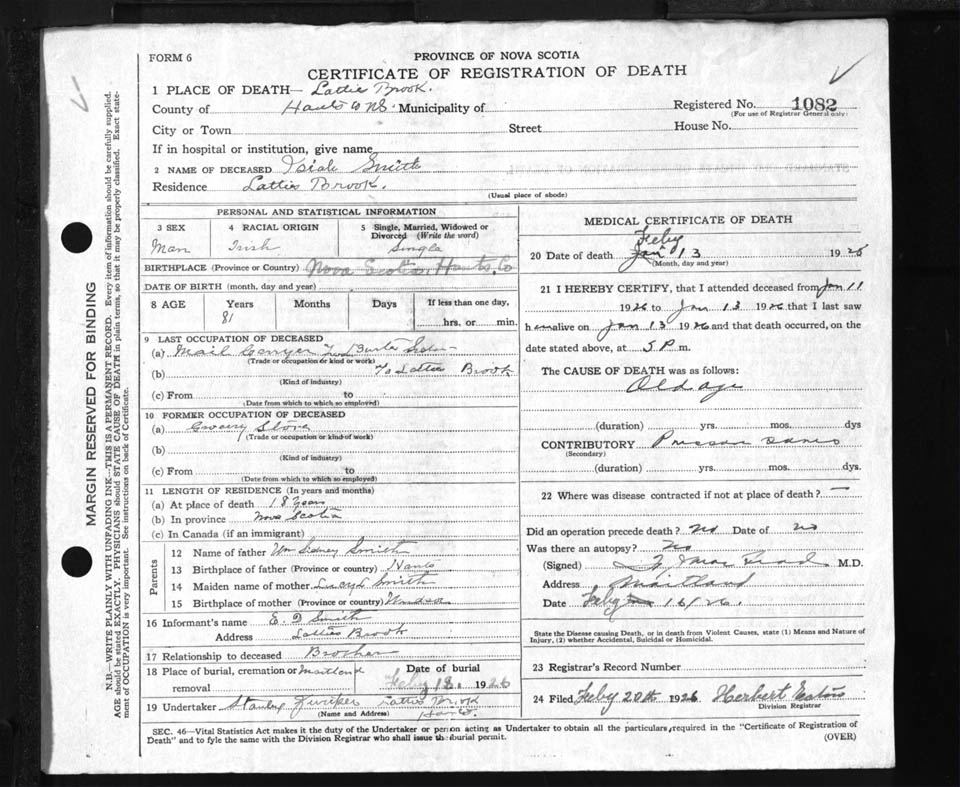 FORM 6
PROVINCE OF NOVA SCOTIA
CERTIFICATE OF REGISTRATION OF DEATH
1 PLACE OF DEATH— Lattie Brook.
County of Hants Co NS. Municipality of
Registered No. 1082
(For use of Registrar General only)
City or Town Street House No.
If in hospital or institution, give name
2 NAME OF DECEASED Smith
Residence Latties Brook.
(Usual place of abode)
MARGIN RESERVED FOR BINDING
N.B.—WRITE PLAINLY WITH UNFADING INK—THIS IS A PERMANENT RECORD. Every item of information should be carefully supplied.
AGE should be stated EXACTLY. PHYSICIANS should STATE CAUSE OF DEATH in plain terms, so that it may be properly classified. Exact state-
ment of OCCUPATION is very important. See instructions on back of Certificate.
PERSONAL AND STATISTICAL INFORMATION
3 SEX
Man
4 RACIAL ORIGIN
Irish
5 Single, Married, Widowed or
Divorced (Write the word)
Single
BIRTHPLACE (Province or Country) Nova Scotia, Hants Co
DATE OF BIRTH (month, day and year)
8 AGE Years Months Days If less than one day,
81
hrs. or min.
9 LAST OCCUPATION OF DECEASED
(a) Mail
(Trade or occupation or kind or work)
(b) To Latties Brook
(Kind of industry)
(c) From to
(Date from which to which so employed)
10 FORMER OCCUPATION OF DECEASED
(a) Grocery Store
(Trade or occupation or kind of work)
(b)
(Kind of industry)
(c) From to
(Date from which to which so employed)
11 LENGTH OF RESIDENCE (In years and months)
(a) At place of death 18 years
(b) In province Nova Scotia
(c) In Canada (if an immigrant)
Parents
12 Name of father Wm Sidney Smith
13 Birthplace of father (Province or country) Hants
14 Maiden name of mother Smith
15 Birthplace of mother (Province or country) Windsor
16 Informant's name E. D Smith
Address Latties Brook
17 Relationship to deceased Brother
18 Place of burial, cremation or Maitland
removal
Date of burial
Feby 18. 1926
19 Undertaker Stanley Latties Brook
(Name and Address) Hants.
MEDICAL CERTIFICATE OF DEATH
Feby
20 Date of death Jan 13 1926
(Month, day and year)
21 I HEREBY CERTIFY, that I attended deceased from Jan 11
1926 to Jan 13 1926 that I last saw
h im alive on Jan 13 1926 and that death occurred, on
date stated above, at 5 P m.
The CAUSE OF DEATH was as follows:
Old age
(duration) yrs. mos. dys
CONTRIBUTORY
(Secondary)
(duration) yrs. mos. dys.
22 Where was disease contracted if not at place of death? —
Did an operation precede death? No Date of no
Was there an autopsy? No
(Signed) M.D.
Address Maitland
Date Feby 16/26.
State the Disease causing Death, or in death from Violent Causes, state (1) Means and Nature of
Injury, (2) whether Accidental, Suicidal or Homicidal.
23 Registrar's Record Number
24 Filed Feby 20th 1926 Herbert
Division Registrar
SEC. 46—Vital Statistics Act makes it the duty of the Undertaker or person acting as Undertaker to obtain all the particulars required in the "Certificate of Registration of
Death" and to fyle the same with the Division Registrar who shall issue the burial permit.
(OVER)